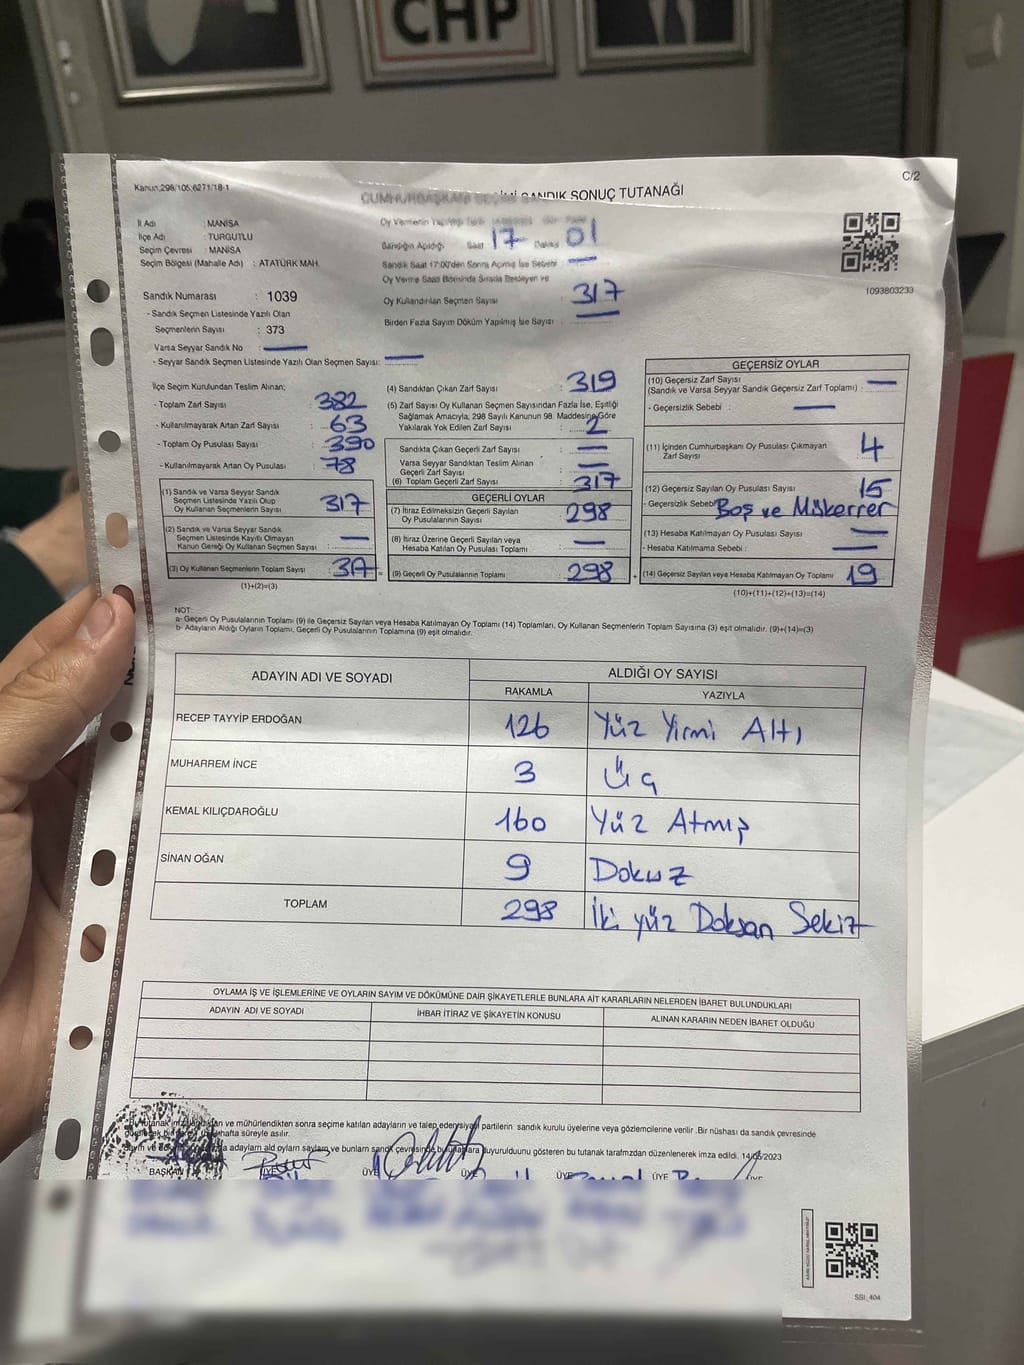 CHP
Kanun,298/105,6271/18-1
C/2
CUMHURBAŞKANI SEÇİMİ SANDIK SONUÇ TUTANAĞI
İl Adı : MANİSA
İlçe Adı : TURGUTLU
Seçim Çevresi : MANİSA
Seçim Bölgesi (Mahalle Adı) : ATATÜRK MAH.
Sandık Numarası : 1039
- Sandık Seçmen Listesinde Yazılı Olan
Seçmenlerin Sayısı : 373
Varsa Seyyar Sandık No
- Seyyar Sandık Seçmen Listesinde Yazılı Olan Seçmen Sayısı:
Oy Vermenin
Sandığın Açıldığı Saat 17 Dakika 01
Sandık Saat 17:00'den Sonra Açılmış İse Sebebi :
Oy Verme Saati Bitiminde Sırada Bekleyen ve
Oy Kullandırılan Seçmen Sayısı 317
Birden Fazla Sayım Döküm Yapılmış İse Sayısı :
1093803233
İlçe Seçim Kurulundan Teslim Alınan;
- Toplam Zarf Sayısı : 382
- Kullanılmayarak Artan Zarf Sayısı : 63
- Toplam Oy Pusulası Sayısı : 390
- Kullanılmayarak Artan Oy Pusulası : 78
(1) Sandık ve Varsa Seyyar Sandık
Seçmen Listesinde Yazılı Olup
Oy Kullanan Seçmenlerin Sayısı : 317
(2) Sandık ve Varsa Seyyar Sandık
Seçmen Listesinde Kayıtlı Olmayan
Kanun Gereği Oy Kullanan Seçmen Sayısı :
(3) Oy Kullanan Seçmenlerin Toplam Sayısı : 317
(1)+(2)=(3)
(4) Sandıktan Çıkan Zarf Sayısı : 319
(5) Zarf Sayısı Oy Kullanan Seçmen Sayısından Fazla İse, Eşitliği
Sağlamak Amacıyla, 298 Sayılı Kanunun 98. Maddesine Göre
Yakılarak Yok Edilen Zarf Sayısı : 2
Sandıkta Çıkan Geçerli Zarf Sayısı :
Varsa Seyyar Sandıktan Teslim Alınan
Geçerli Zarf Sayısı :
(6) Toplam Geçerli Zarf Sayısı : 317
GEÇERLİ OYLAR
(7) İtiraz Edilmeksizin Geçerli Sayılan
Oy Pusulalarının Sayısı : 298
(8) İtiraz Üzerine Geçerli Sayılan veya
Hesaba Katılan Oy Pusulası Toplamı :
(9) Geçerli Oy Pusulalarının Toplamı : 298
GEÇERSİZ OYLAR
(10) Geçersiz Zarf Sayısı
(Sandık ve Varsa Seyyar Sandık Geçersiz Zarf Toplamı) :
- Geçersizlik Sebebi :
(11) İçinden Cumhurbaşkanı Oy Pusulası Çıkmayan
Zarf Sayısı : 4
(12) Geçersiz Sayılan Oy Pusulası Sayısı : 15
- Geçersizlik Sebebi Boş ve Mükerrer
(13) Hesaba Katılmayan Oy Pusulası Sayısı :
- Hesaba Katılmama Sebebi :
(14) Geçersiz Sayılan veya Hesaba Katılmayan Oy Toplamı : 19
(10)+(11)+(12)+(13)=(14)
NOT:
a- Geçerli Oy Pusulalarının Toplamı (9) ile Geçersiz Sayılan veya Hesaba Katılmayan Oy Toplamı (14) Toplamları, Oy Kullanan Seçmenlerin Toplam Sayısına (3) eşit olmalıdır. (9)+(14)=(3)
b- Adayların Aldığı Oyların Toplamı, Geçerli Oy Pusulalarının Toplamına (9) eşit olmalıdır.
ADAYIN ADI VE SOYADI ALDIĞI OY SAYISI
RAKAMLA YAZIYLA
RECEP TAYYİP ERDOĞAN 126 Yüz Yirmi Altı
MUHARREM İNCE 3 Üç
KEMAL KILIÇDAROĞLU 160 Yüz Atmış
SİNAN OĞAN 9 Dokuz
TOPLAM 298 İki yüz Doksan Sekiz
OYLAMA İŞ VE İŞLEMLERİNE VE OYLARIN SAYIM VE DÖKÜMÜNE DAİR ŞİKAYETLERLE BUNLARA AİT KARARLARIN NELERDEN İBARET BULUNDUKLARI
ADAYIN ADI VE SOYADI İHBAR İTİRAZ VE ŞİKAYETİN KONUSU ALINAN KARARIN NEDEN İBARET OLDUĞU
ve mühürlendikten sonra seçime katılan adayların ve talep eden siyasi partilerin sandık kurulu üyelerine veya gözlemcilerine verilir .Bir nüshası da sandık çevresinde
hafta süreyle asılır.
duyurulduunu gösteren bu tutanak tarafmzdan düzenlenerek imza edildi. 14/05/2023
BAŞKAN ÜYE ÜYE ÜYE ÜYE ÜYE ÜYE
SSI_404